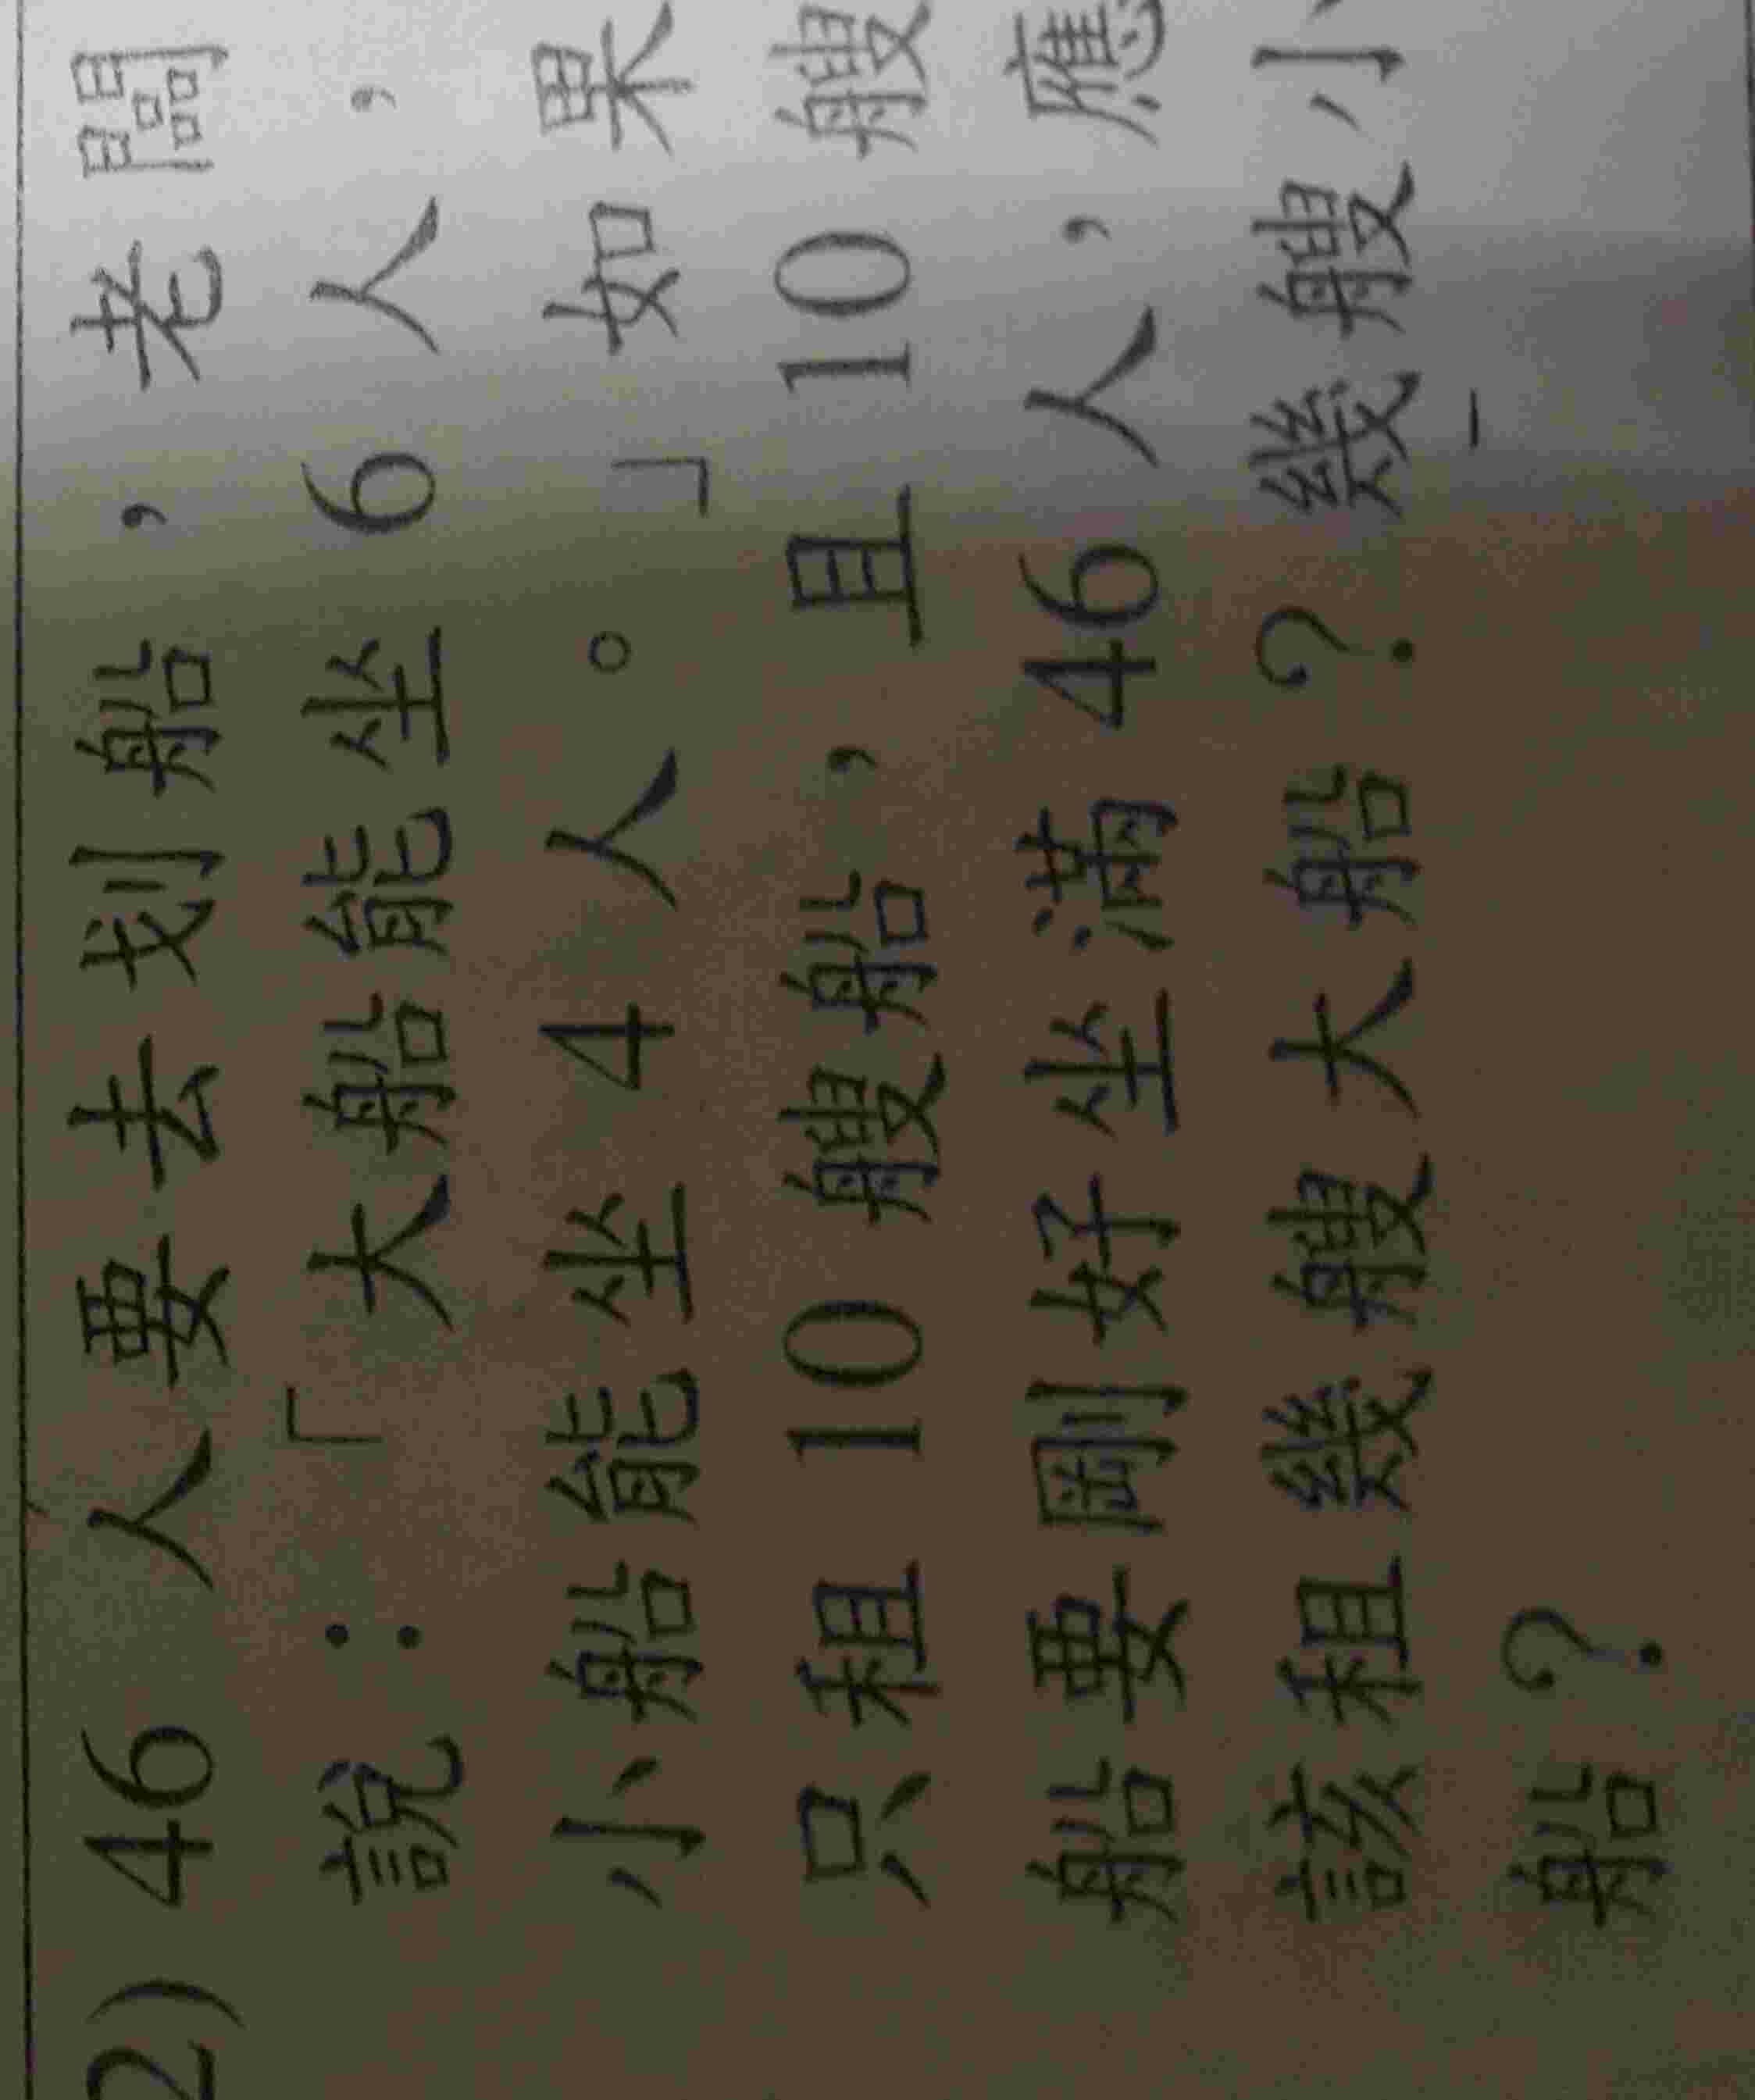 2) 46 人要去划船，老闆
說：「大船能坐 6 人，
小船能坐 4 人。」如果
只租 10 艘船，且 10 艘
船要剛好坐滿 46 人，應
該租幾艘大船？幾艘小
船？